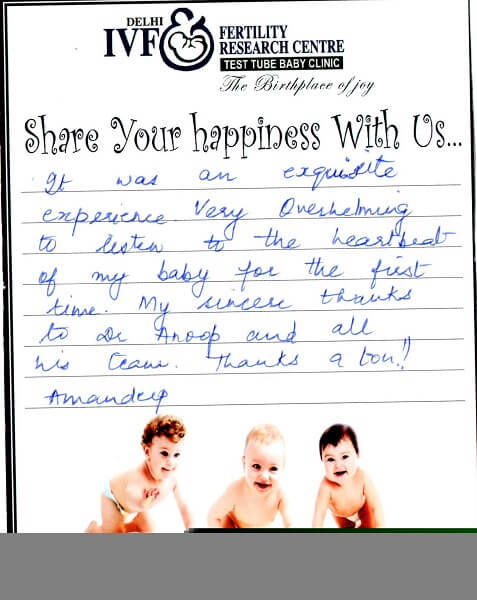 DELHI
IVF & FERTILITY
RESEARCH CENTRE
TEST TUBE BABY CLINIC
The Birthplace of joy
Share Your happiness With Us...
It was an exquisite
experience. Very Overhelming
to listen to the heartbeat
of my baby for the first
time. My sincere thanks
to Dr Anoop and all
his team. Thanks a ton!!
Amandeep